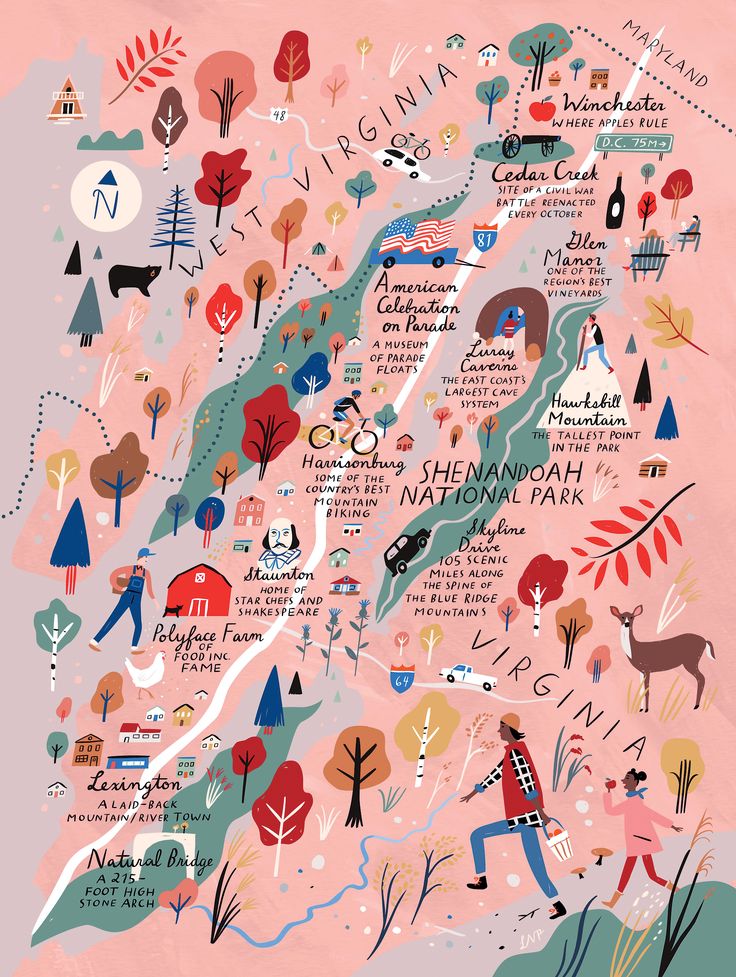 MARYLAND
WEST VIRGINIA
48
Winchester
WHERE APPLES RULE
D.C. 75M→
Cedar Creek
SITE OF A CIVIL WAR
BATTLE REENACTED
EVERY OCTOBER
N
81
Glen
Manor
ONE OF THE
REGION'S BEST
VINEYARDS
American
Celebration
on Parade
A MUSEUM
OF PARADE
FLOATS
Luray
Caverns
THE EAST COAST'S
LARGEST CAVE
SYSTEM
Hawksbill
Mountain
THE TALLEST POINT
IN THE PARK
Harrisonburg
SOME OF THE
COUNTRY'S BEST
MOUNTAIN
BIKING
SHENANDOAH
NATIONAL PARK
Skyline
Drive
105 SCENIC
MILES ALONG
THE SPINE OF
THE BLUE RIDGE
MOUNTAINS
Staunton
HOME OF
STAR CHEFS AND
SHAKESPEARE
Polyface Farm
OF
FOOD INC.
FAME
VIRGINIA
64
Lexington
A LAID-BACK
MOUNTAIN/RIVER TOWN
Natural Bridge
A 215-
FOOT HIGH
STONE ARCH
LNP